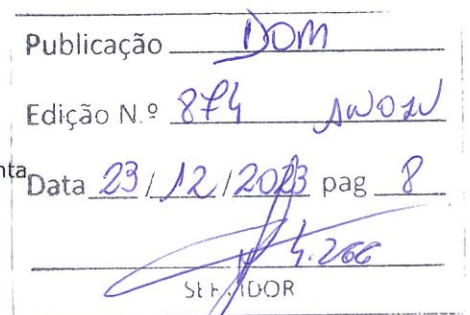 Publicação DOM
Edição N.º 874
nta
Data 23/12/2023 pag 8
4.266
SERVIDOR